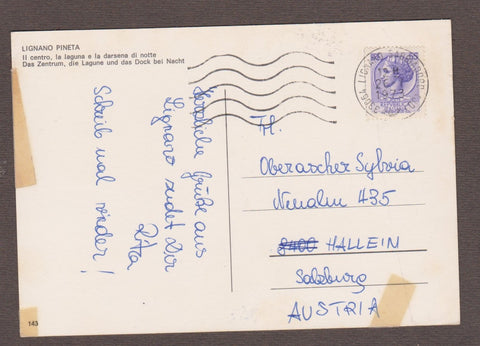 LIGNANO PINETA
Il centro, la laguna e la darsena di notte
Das Zentrum, die Lagune und das Dock bei Nacht
Herzliche Grüße aus
Lignano sendet Dir
Rita
Schreib mal wieder!
Oberascher Sylvia
Neualm 435
8400 HALLEIN
Salzburg
AUSTRIA
143